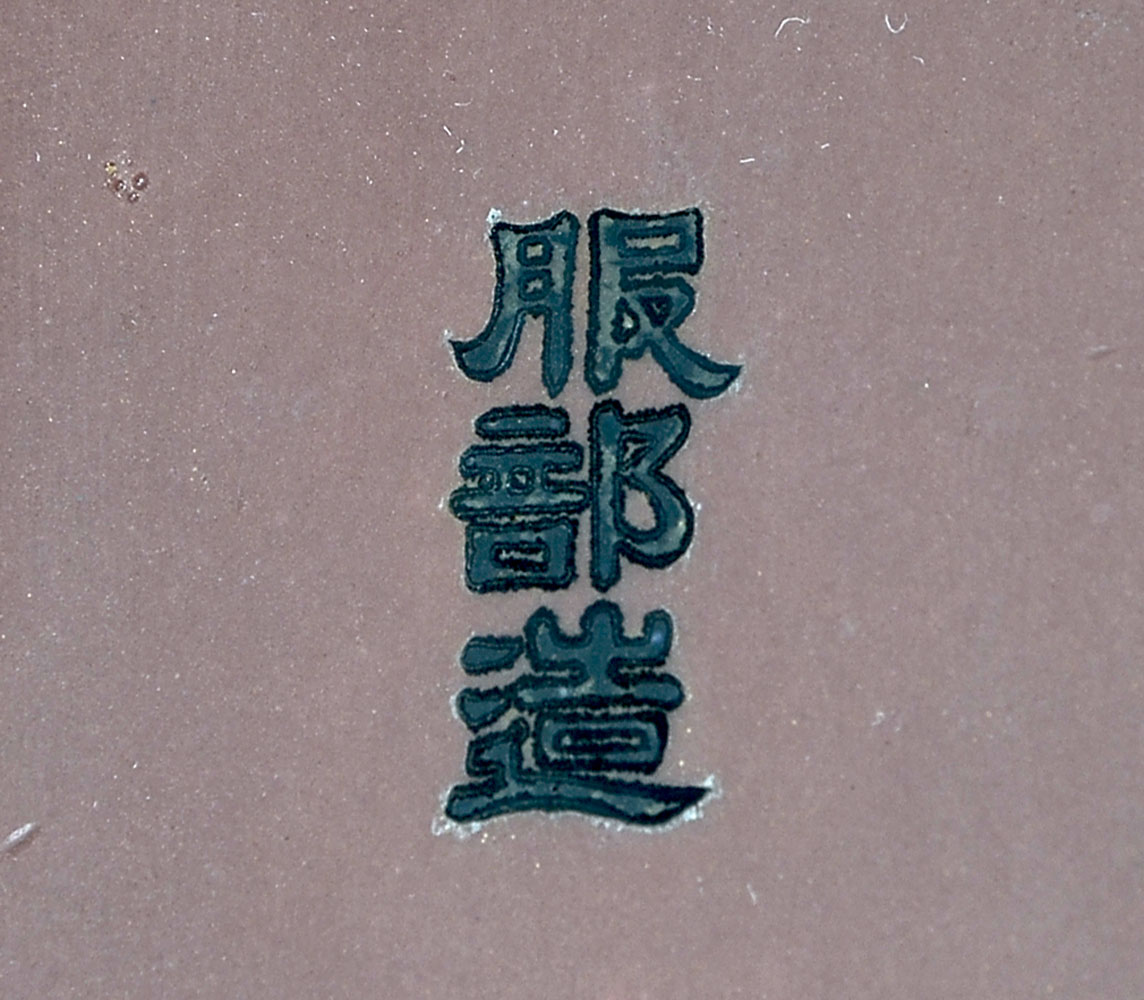 服部造